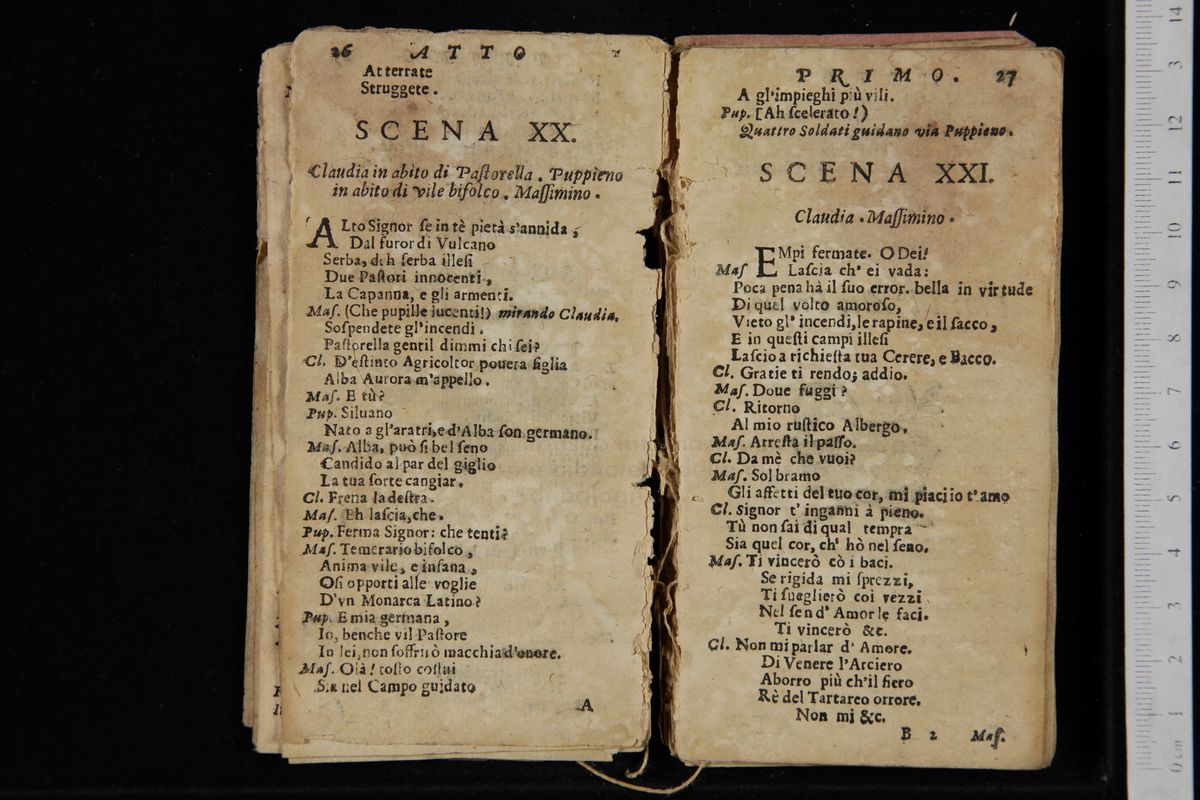 26 ATTO
Atterrate
Struggete.
SCENA XX.
Claudia in abito di Paſtorella. Puppieno
in abito di vile bifolco. Maſſimino.
ALto Signor ſe in tè pietà s'annida,
Dal furor di Vulcano
Serba, deh ſerba illeſi
Due Paſtori innocenti,
La Capanna, e gli armenti.
Maſ. (Che pupille lucenti!) mirando Claudia.
Soſpendete gl'incendi.
Paſtorella gentil dimmi chi ſei?
Cl. D'eſtinto Agricoltor pouera figlia
Alba Aurora m'appello.
Maſ. E tù?
Pup. Siluano
Nato a gl'aratri, e d'Alba ſon germano.
Maſ. Alba, può ſi bel ſeno
Candido al par del giglio
La tua ſorte cangiar.
Cl. Frena la deſtra.
Maſ. Eh laſcia, che.
Pup. Ferma Signor: che tenti?
Maſ. Temerario bifolco,
Anima vile, e inſana,
Oſi opporti alle voglie
D'vn Monarca Latino?
Pup. E mia germana,
Io, benche vil Paſtore
In lei, non ſoffrirò macchia d'onore.
Maſ. Olà! toſto coſtui
Sia nel Campo guidato
A
PRIMO. 27
A gl'impieghi più vili.
Pup. [Ah ſcelerato!)
Quattro Soldati guidano via Puppieno.
SCENA XXI.
Claudia. Maſſimino.
EMpi fermate. O Dei!
Maſ Laſcia ch' ei vada:
Poca pena hà il ſuo error. bella in virtude
Di quel volto amoroſo,
Vieto gl' incendi, le rapine, e il ſacco,
E in queſti campi illeſi
Laſcio a richieſta tua Cerere, e Bacco.
Cl. Gratie ti rendo; addio.
Maſ. Doue fuggi?
Cl. Ritorno
Al mio ruſtico Albergo.
Maſ. Arreſta il paſſo.
Cl. Da mè che vuoi?
Maſ. Sol bramo
Gli affetti del tuo cor, mi piaci io t'amo
Cl. Signor t' inganni à pieno.
Tù non ſai di qual tempra
Sia quel cor, ch' hò nel ſeno.
Maſ. Ti vincerò cò i baci.
Se rigida mi ſprezzi,
Ti ſueglierò coi vezzi
Nel ſen d' Amor le faci.
Ti vincerò &c.
Cl. Non mi parlar d' Amore.
Di Venere l'Arciero
Aborro più ch'il fiero
Rè del Tartareo orrore.
Non mi &c.
B 2 Maſ.
0 cm 1 2 3 4 5 6 7 8 9 10 11 12 3 14